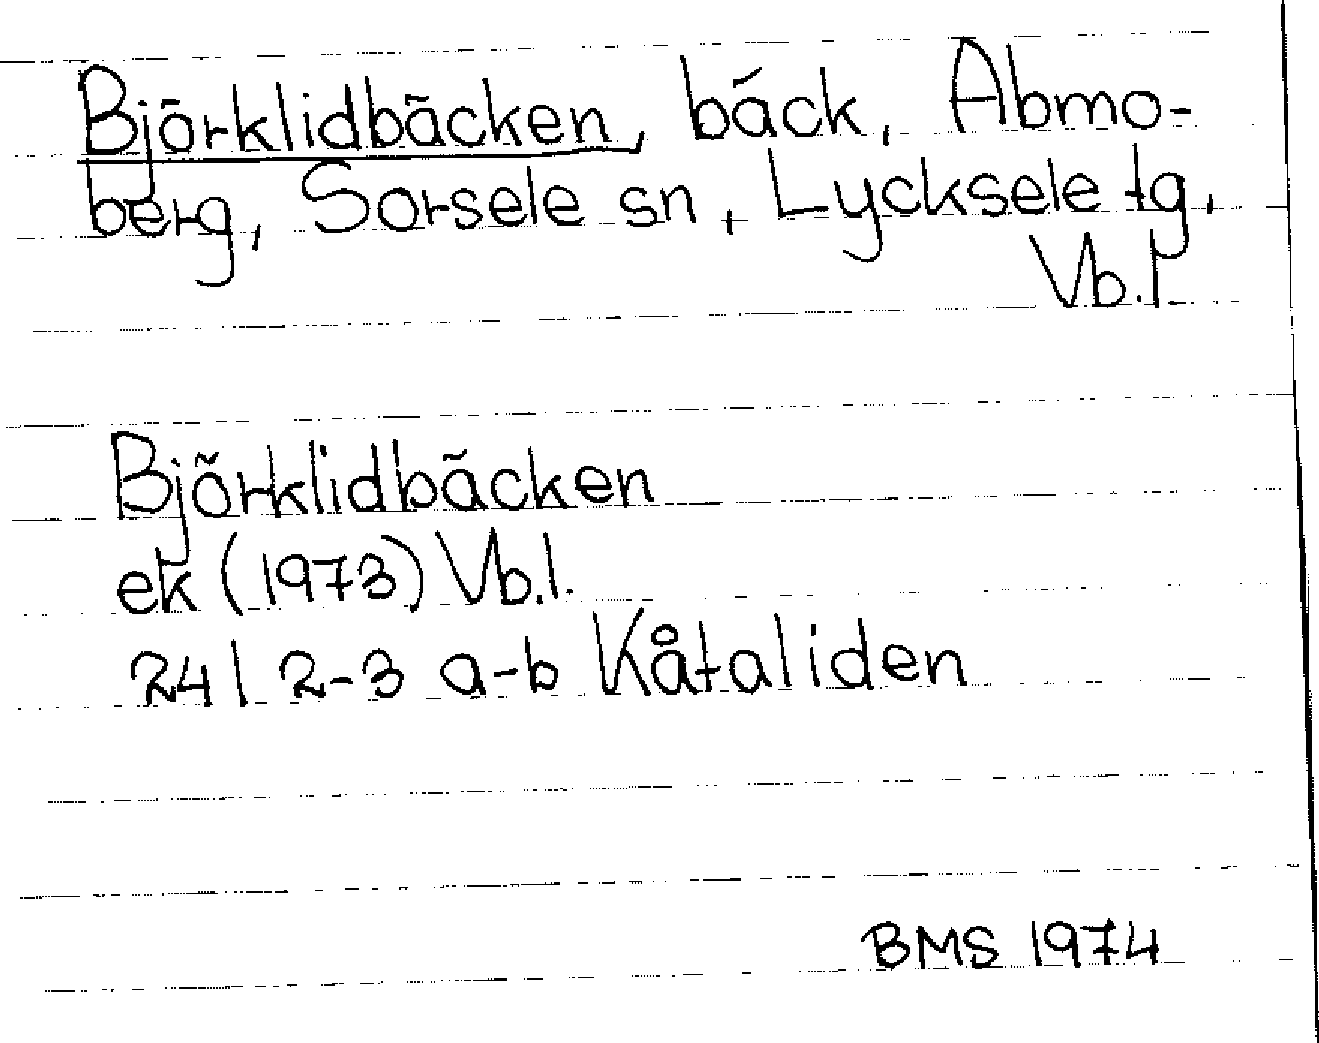 Björklidbäcken, bäck, Abmo-
berg, Sorsele sn, Lycksele tg,
Vb.l
Björklidbäcken
ek (1973) Vb.l.
24 I 2-3 a-b Kåtaliden
BMS 1974